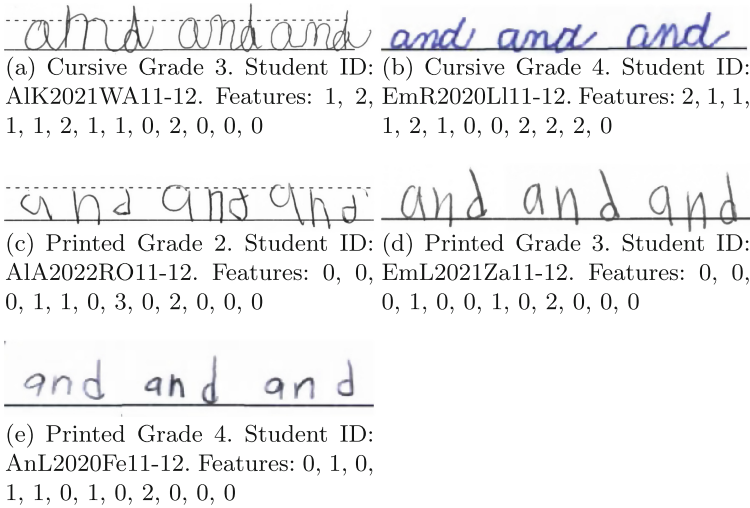 and and and
(a) Cursive Grade 3. Student ID:
AlK2021WA11-12. Features: 1, 2,
1, 1, 2, 1, 1, 0, 2, 0, 0, 0
and and and
(b) Cursive Grade 4. Student ID:
EmR2020Ll11-12. Features: 2, 1, 1,
1, 2, 1, 0, 0, 2, 2, 2, 0
and and and
(c) Printed Grade 2. Student ID:
AlA2022RO11-12. Features: 0, 0,
0, 1, 1, 0, 3, 0, 2, 0, 0, 0
and and and
(d) Printed Grade 3. Student ID:
EmL2021Za11-12. Features: 0, 0,
0, 1, 0, 0, 1, 0, 2, 0, 0, 0
and and and
(e) Printed Grade 4. Student ID:
AnL2020Fe11-12. Features: 0, 1, 0,
1, 1, 0, 1, 0, 2, 0, 0, 0